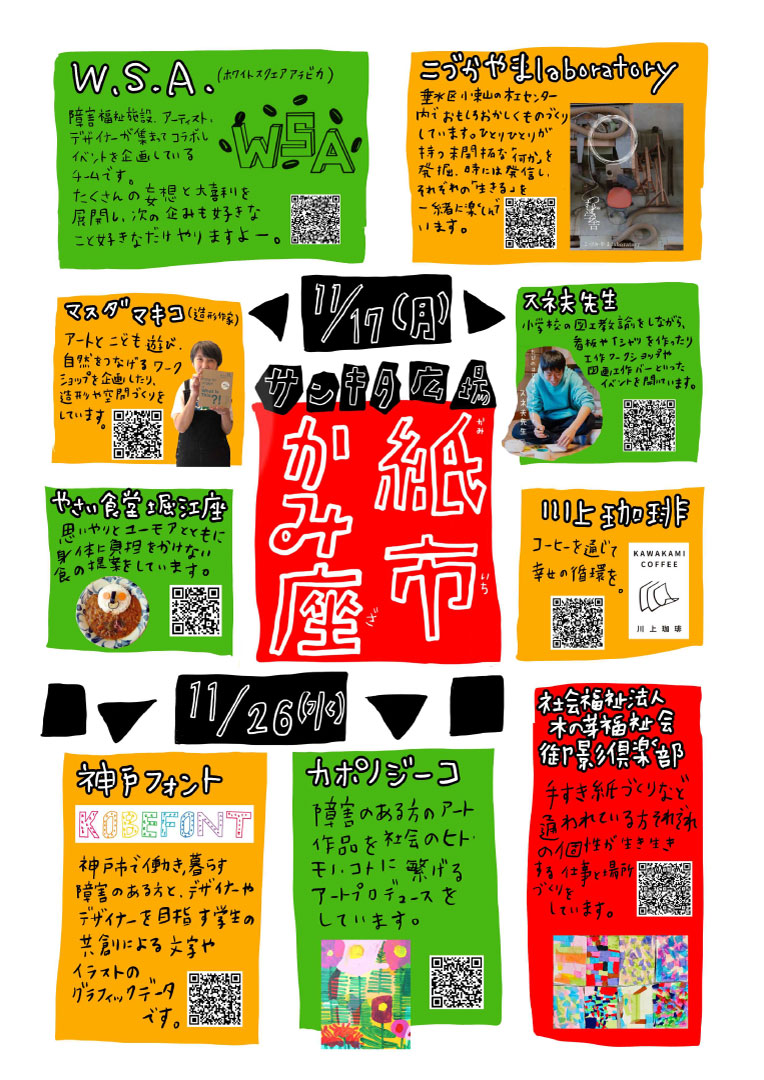 W.S.A.(ホワイトスクエアアラビカ)
障害福祉施設、アーティスト、
デザイナーが集まってコラボし
イベントを企画している
チームです。
たくさんの妄想と大喜利を
展開し、次の企みも好きな
こと好きなだけやりますよー。
WSA
こづかやまlaboratory
垂水区小束山の木工センター
内でおもしろおかしくものづくり
しています。ひとりひとりが
持つ未開拓な「何か」を
発掘、時には発信し、
それぞれの「生きる」を
一緒に楽しんで
います。
11/17(月)
サンキタ広場
紙市
かみ いち
かみ座
ざ
マスダマキコ(造形作家)
アートとこども遊び、
自然をつなげるワーク
ショップを企画したり、
造形や空間づくりを
しています。
?!
スネ夫先生
小学校の図工教諭をしながら、
看板やTシャツを作ったり
工作ワークショップや
図画工作バーといった
イベントを開いています。
スネ夫先生
やさい食堂堀江座
思いやりとユーモアとともに
身体に負担をかけない
食の提案をしています。
川上珈琲
コーヒーを通じて
幸せの循環を。
KAWAKAMI
COFFEE
川上珈琲
11/26(水)
神戸フォント
KOBEFONT
神戸市で働き、暮らす
障害のある方と、デザイナーや
デザイナーを目指す学生の
共創による文字や
イラストの
グラフィックデータ
です。
カポノジーコ
障害のある方のアート
作品を社会のヒト・
モノ・コトに繋げる
アートプロデュースを
しています。
社会福祉法人
木の芽福祉会
御影倶楽部
手すき紙づくりなど、
通われている方それぞれ
の個性が生き生き
する仕事と場所
づくりを
しています。